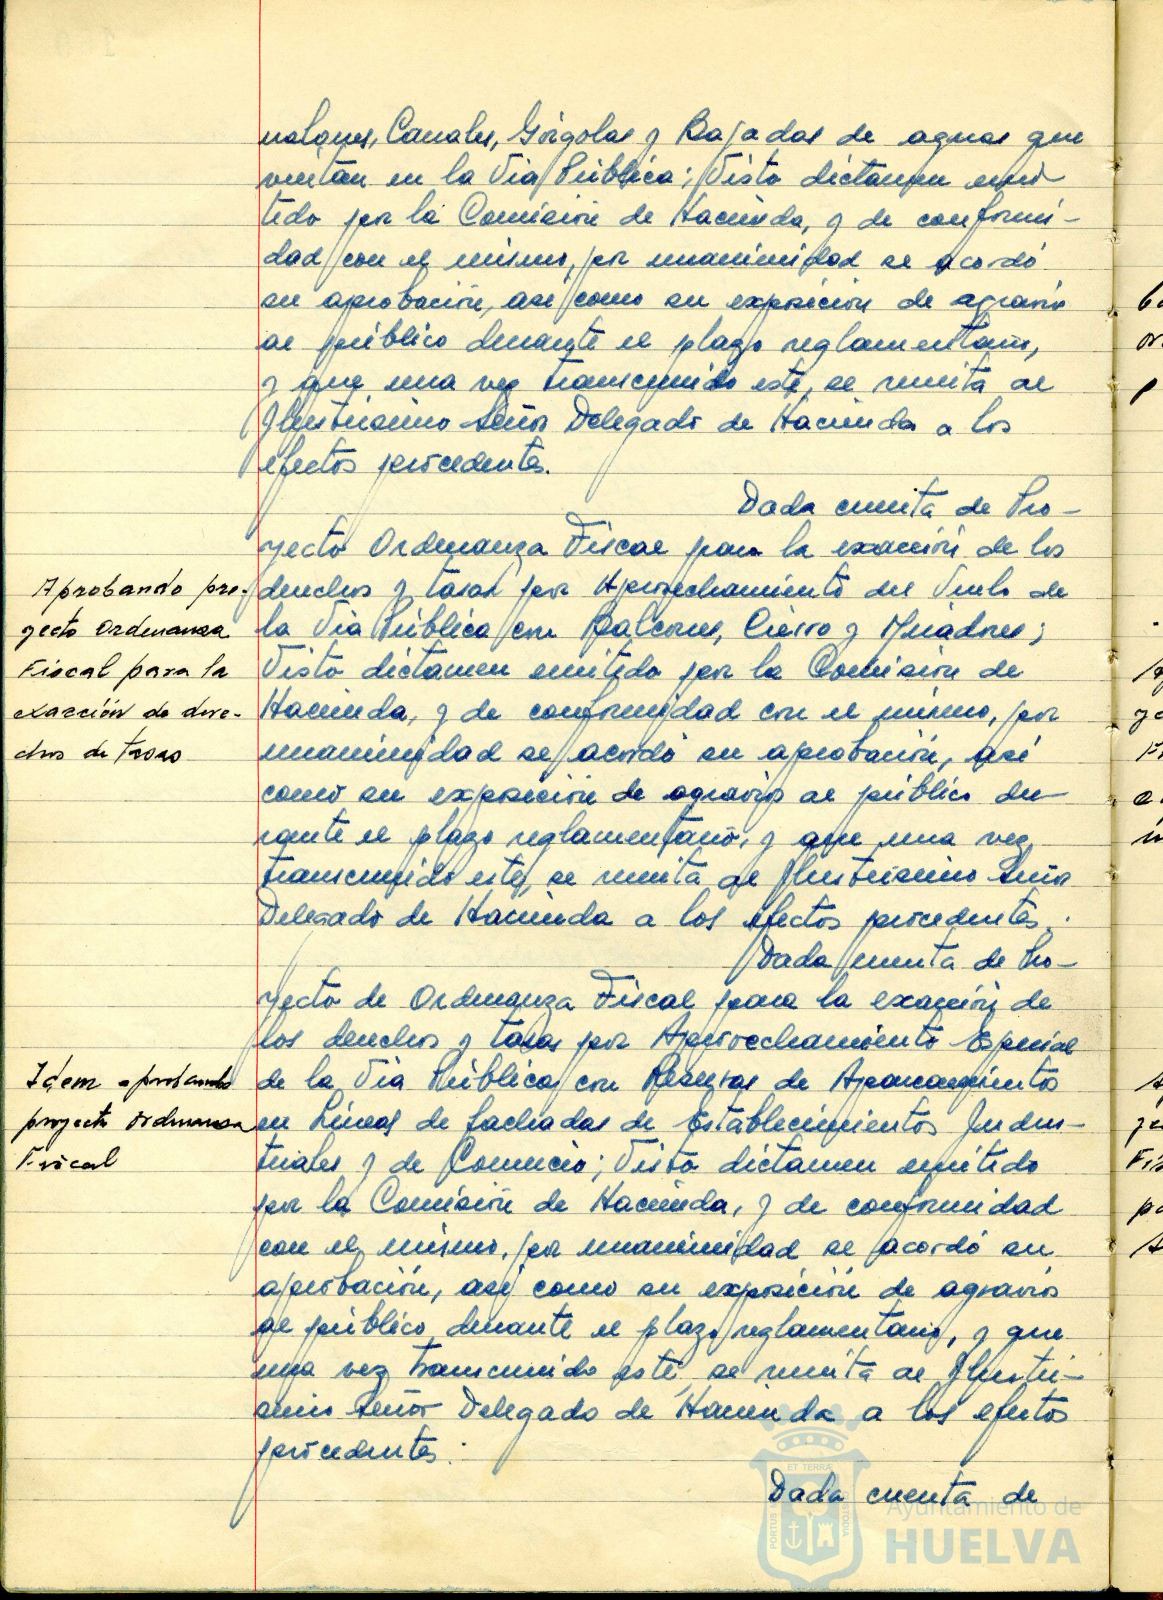 nalones, Canales, Górgolas y Bajadas de aguas que
viertan en la Via Pública; Visto dictamen emi-
tido por la Comisión de Hacienda, y de conformi-
dad con el mismo, por unanimidad se acordó
su aprobación, así como su exposición de agravios
al público durante el plazo reglamentario,
y que una vez transcurrido este, se remita al
Ilustrisimo Señor Delegado de Hacienda a los
efectos procedentes.
Dada cuenta de Pro-
yecto Ordenanza Fiscal para la exacción de los
derechos y tasas por Aprovechamiento del Vuelo de
la Via Pública con Balcones, Cierro y Miradores;
Visto dictamen emitido por la Comisión de
Hacienda, y de conformidad con el mismo, por
unanimidad se acordó su aprobación, así
como su exposición de agravios al público du-
rante el plazo reglamentario, y que una vez
transcurrido este, se remita al Ilustrisimo Señor
Delegado de Hacienda a los efectos procedentes.
Dada cuenta de Pro-
yecto de Ordenanza Fiscal para la exacción de
los derechos y tasas por Aprovechamiento Especial
de la Via Pública con Reservas de Aparcamientos
en Líneas de fachadas de Establecimientos Indus-
triales y de Comercio; Visto dictamen emitido
por la Comisión de Hacienda, y de conformidad
con el mismo, por unanimidad se acordó su
aprobación, así como su exposición de agravios
al público durante el plazo reglamentario, y que
una vez transcurrido este, se remita al Ilustri-
simo Señor Delegado de Hacienda a los efectos
procedentes.
Dada cuenta de
Aprobando pro-
yecto Ordenanza
Fiscal para la
exacción de dere-
chos de tasas
Idem aprobando
proyecto ordenanza
Fiscal
ET TERRÆ
PORTUS
CUSTODIA
Ayuntamiento de
HUELVA